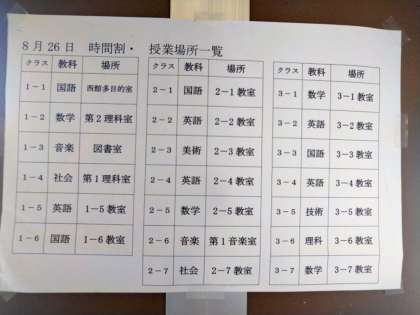 8月26日　時間割・　授業場所一覧
クラス 教科 場所
1－1 国語 西館多目的室
1－2 数学 第2理科室
1－3 音楽 図書室
1－4 社会 第1理科室
1－5 英語 1－5教室
1－6 国語 1－6教室
クラス 教科 場所
2－1 国語 2－1教室
2－2 英語 2－2教室
2－3 美術 2－3教室
2－4 英語 2－4教室
2－5 数学 2－5教室
2－6 音楽 第1音楽室
2－7 社会 2－7教室
クラス 教科 場所
3－1 数学 3－1教室
3－2 英語 3－2教室
3－3 国語 3－3教室
3－4 英語 3－4教室
3－5 技術 3－5教室
3－6 理科 3－6教室
3－7 数学 3－7教室